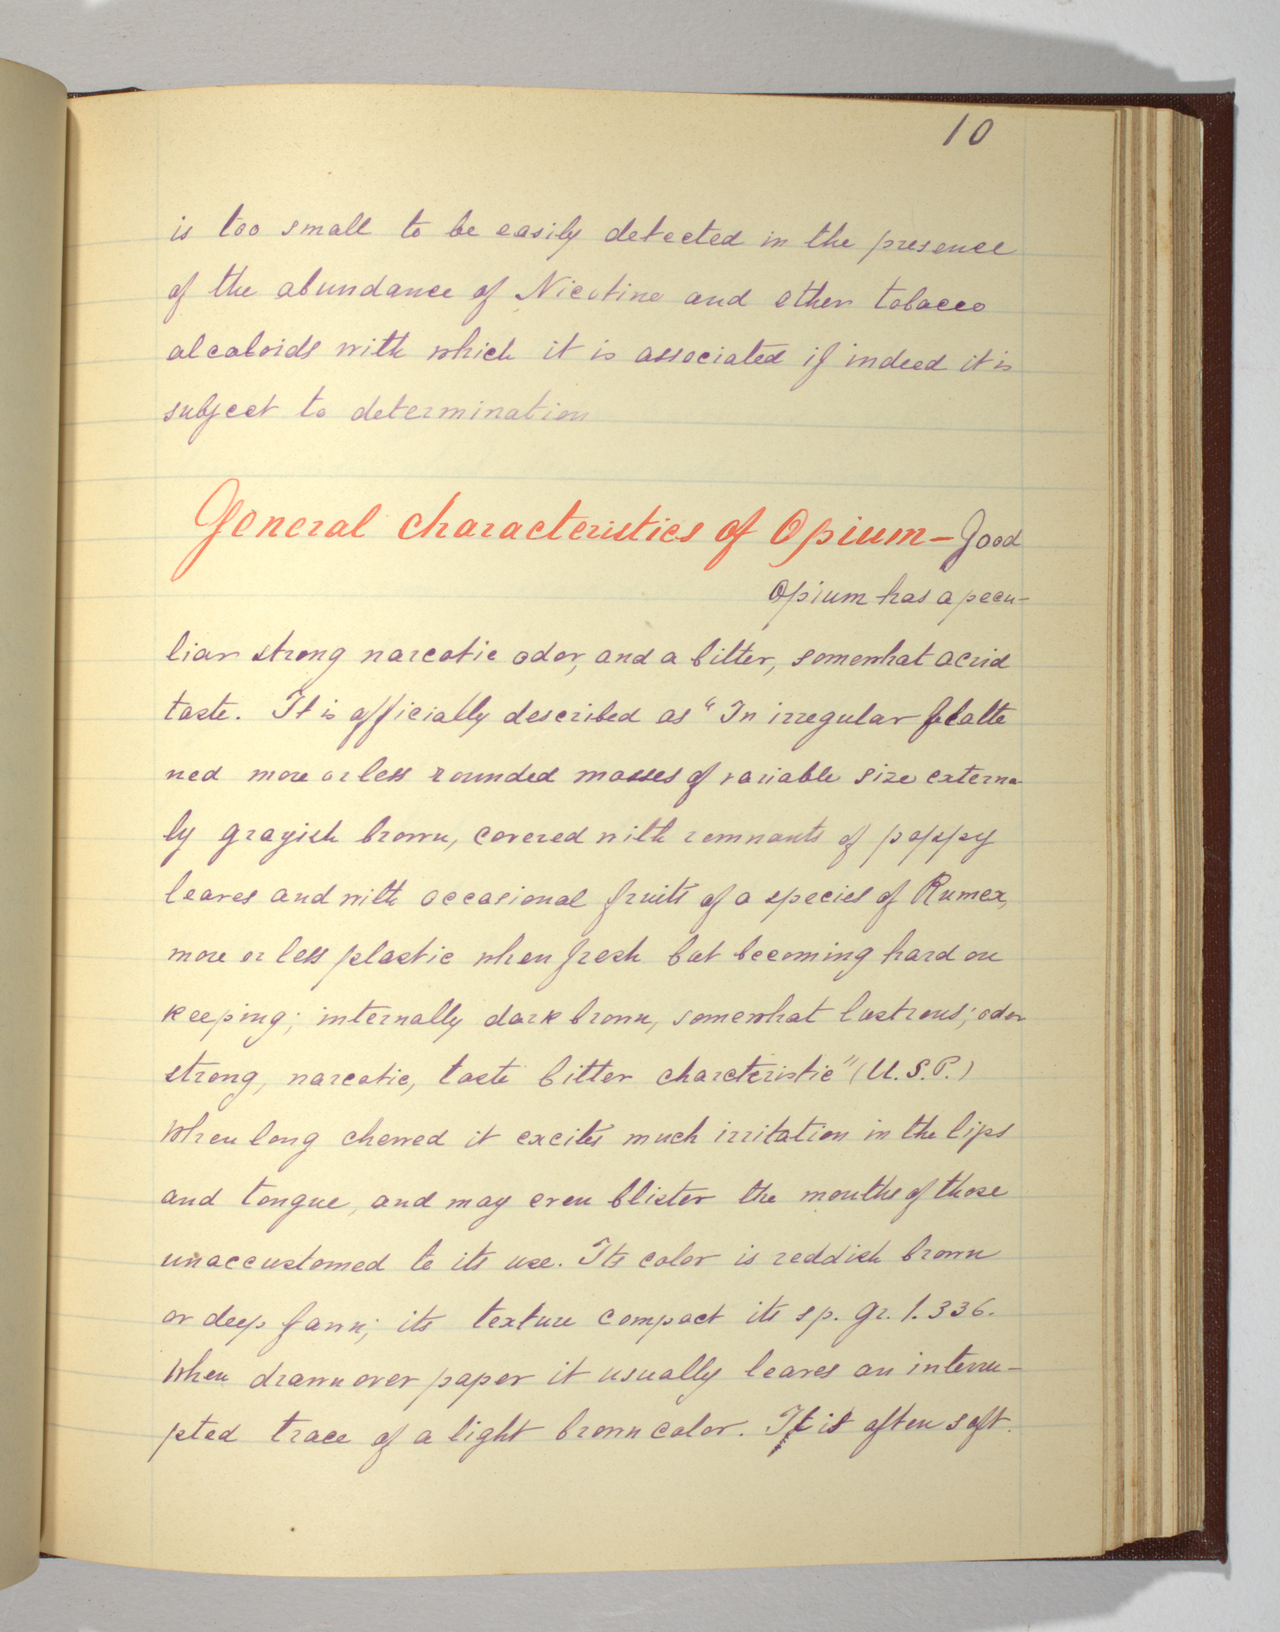 10
is too small to be easily detected in the presence
of the abundance of Nicotine and other tobacco
alcaloids with which it is associated if indeed it is
subject to determination
General characteristics of Opium – Good
Opium has a pecu-
liar strong narcotic odor, and a bitter, somewhat acrid
taste. It is officially described as "In irregular flatte
ned more or less rounded masses of variable size externa
ly grayish brown, covered with remnants of poppy
leaves and with occasional fruits of a species of Rumex,
more or less plastic when fresh but becoming hard on
keeping; internally dark brown, somewhat lustrous; odor
strong, narcotic, taste bitter charcteristic" (U.S.P.)
When long chewed it excites much irritation in the lips
and tongue, and may even blister the mouths of those
unaccustomed to its use. Its color is reddish brown
or deep fawn; its texture compact its sp. gr. 1.336.
When drawn over paper it usually leaves an interru-
pted trace of a light brown color. It is often soft.